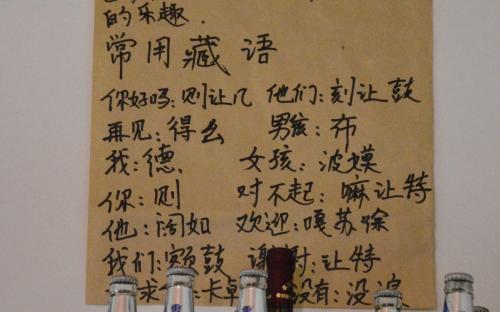 的乐趣.
常用藏语
你好吗:则让几 他们:刻让鼓
再见:得么 男孩:布
我:德 女孩:波嫫
你:则 对不起:嘛让特
他:阔如 欢迎:嘎苏徐
我们:额鼓 谢谢:让特
求 卡卓 没有:没浪